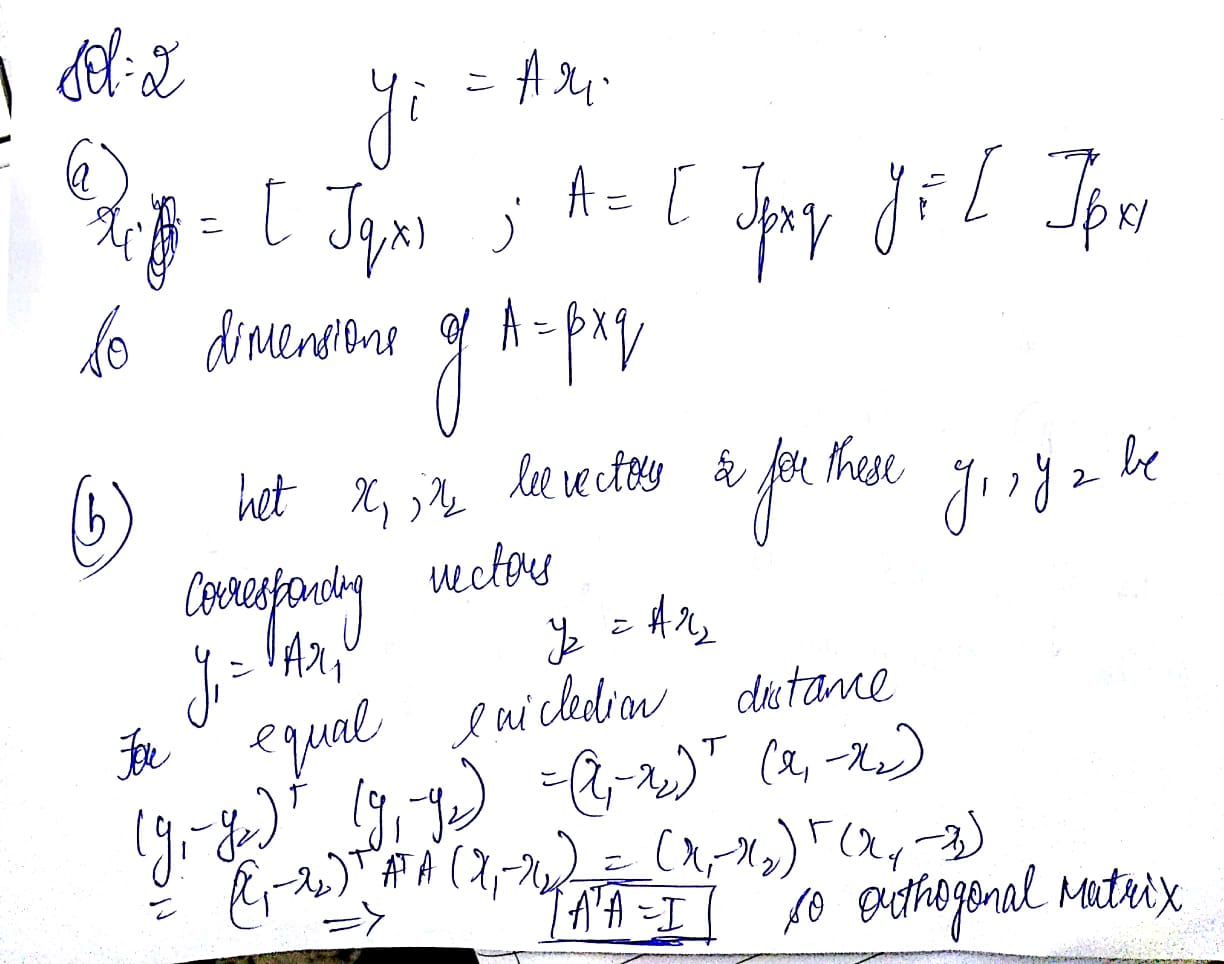 Sol:2
yi = Axi
(a) xi = [ ]q×1 ; A = [ ]p×q yi = [ ]p×1
So dimensions of A = p×q
(b) Let x1, x2 be vectors & for these y1, y2 be
Corresponding vectors
y1 = Ax1 y2 = Ax2
For equal euicledian distance
(y1-y2)ᵀ (y1-y2) = (x1-x2)ᵀ (x1-x2)
= (x1-x2)ᵀ AᵀA (x1-x2) = (x1-x2)ᵀ (x1-x2)
=> AᵀA = I so orthogonal Matrix